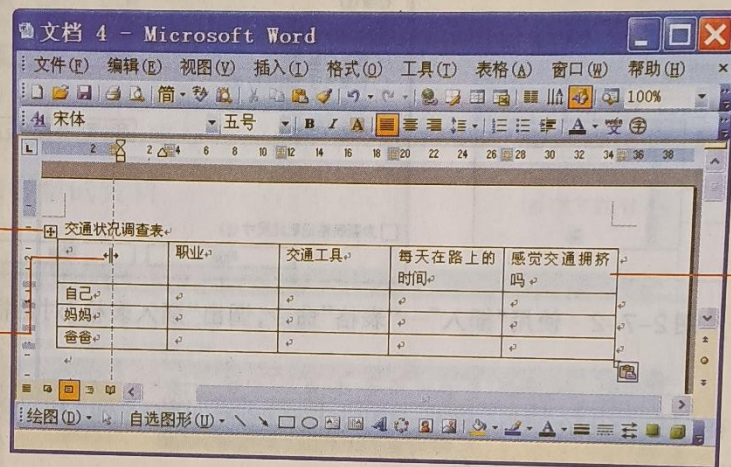 文档 4 - Microsoft Word
文件(F) 编辑(E) 视图(V) 插入(I) 格式(O) 工具(T) 表格(A) 窗口(W) 帮助(H)
100%
宋体 五号 B I A
2 2 4 6 8 10 12 14 16 18 20 22 24 26 28 30 32 34 36 38
交通状况调查表
职业 交通工具 每天在路上的时间 感觉交通拥挤吗
自己
妈妈
爸爸
绘图(D) 自选图形(U)